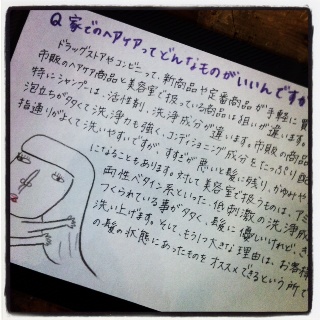 Q 家でのヘアケアってどんなものがいいんですか
ドラッグストアやコンビニって、新商品や定番商品が手軽に買
市販のヘアケア商品と美容室で扱っている商品は狙いが違います。
特にシャンプーは、活性剤、洗浄成分が違います。市販の商品
泡立ちがタタくて洗浄力も強く、コンディショニング成分をたっぷり
指通りがよくて洗いやすいですが、すすぎが悪いと髪に残り、かゆみや
になることもあります。対して美容室で扱うものは、アミ
両性ベタイン系といった低刺激の洗浄成
つくられている事がタタく、髪に優しいけれど、き
洗い上げます。そして、もう1つ大きな理由は、お客様
の髪の状態にあったものをオススメできるという所で